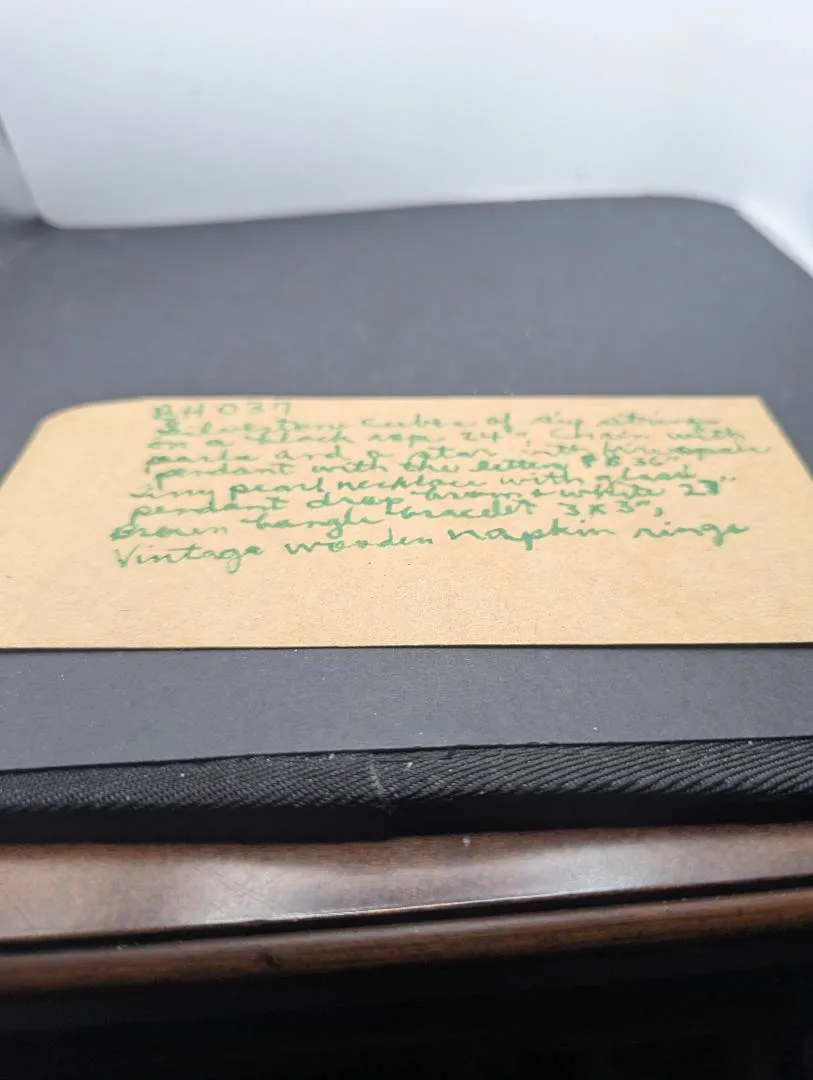 BH 037
cubes of strings
on a black rope 24", Chain with
pearls and a star with
pendant with the letter 36"
tiny pearl necklace with
pendant drop brown & white 27"
Brown bangle bracelet 3 x 3",
Vintage wooden napkin rings